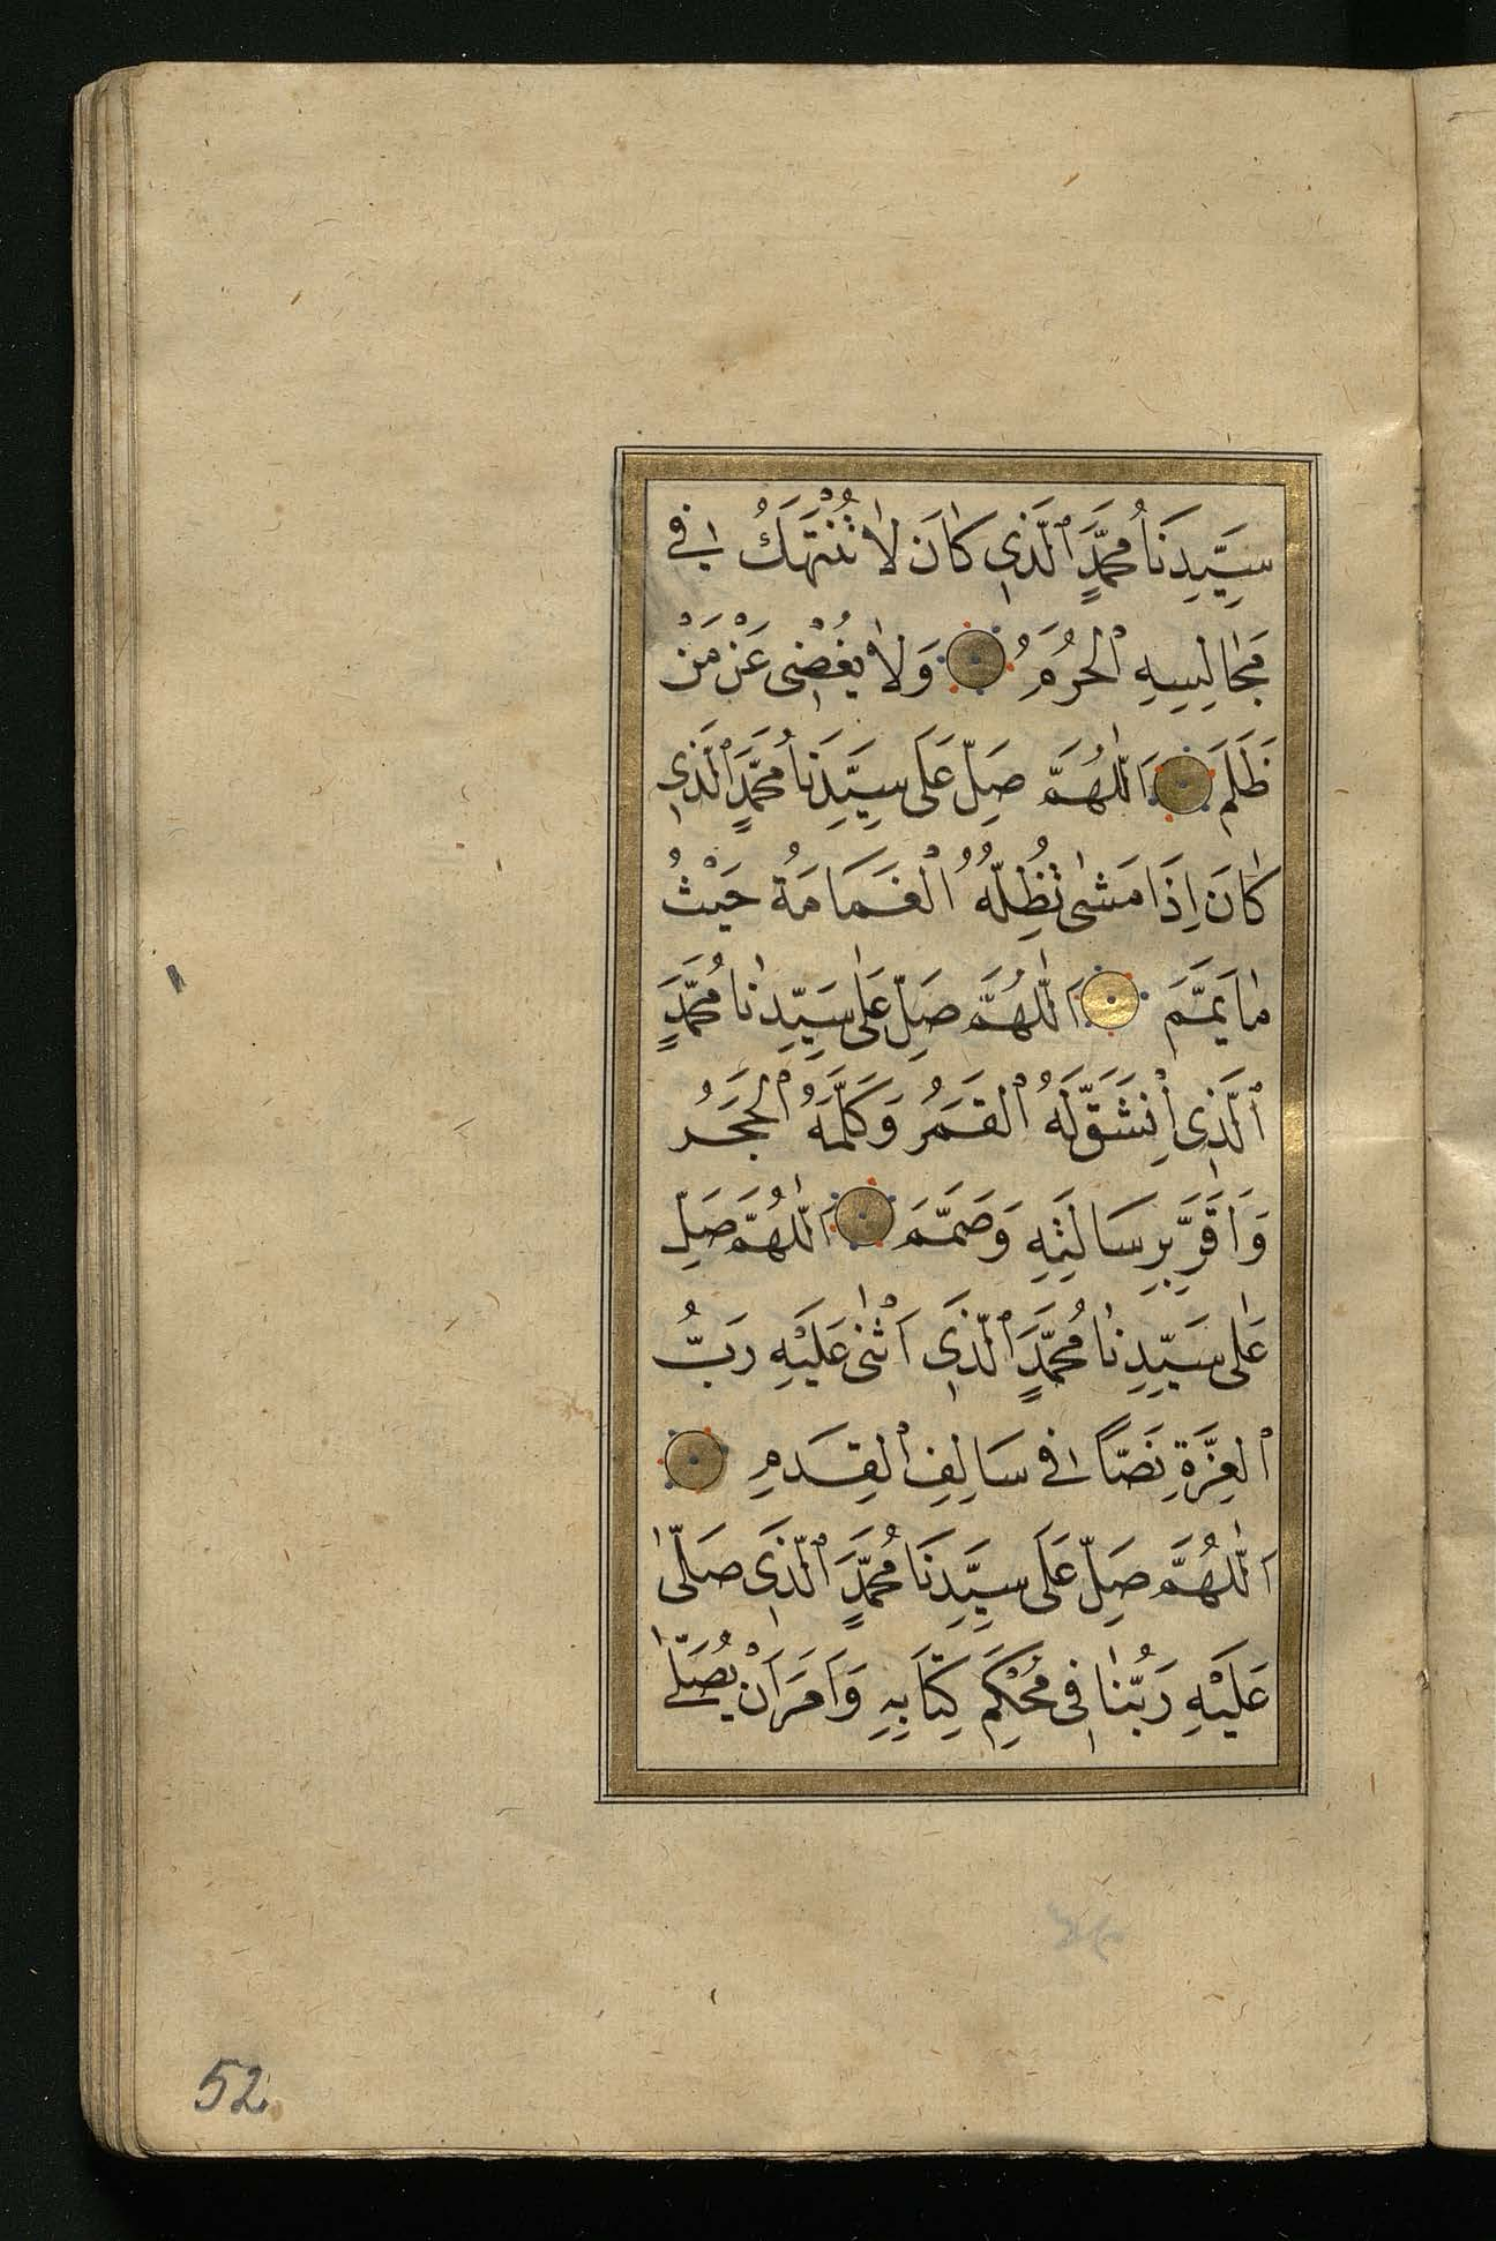 سَيِّدِنَا مُحَمَّدٍ ٱلَّذِي كَانَ لَا تُنْتَهَكُ فِي
مَجَالِسِهِ ٱلْحُرُمُ وَلَا يُغْضِي عَنْ مَنْ
ظَلَمَ اَللّٰهُمَّ صَلِّ عَلَى سَيِّدِنَا مُحَمَّدٍ ٱلَّذِي
كَانَ اِذَا مَشٰى تُظِلُّهُ ٱلْغَمَامَةُ حَيْثُ
مَا يَمَّمَ اَللّٰهُمَّ صَلِّ عَلٰى سَيِّدِنَا مُحَمَّدٍ
ٱلَّذِي اْنْشَقَّ لَهُ ٱلْقَمَرُ وَكَلَّمَهُ ٱلْحَجَرُ
وَاَقَرَّ بِرِسَالَتِهِ وَصَمَّمَ اَللّٰهُمَّ صَلِّ
عَلٰى سَيِّدِنَا مُحَمَّدٍ ٱلَّذِي اَثْنٰى عَلَيْهِ رَبُّ
ٱلْعِزَّةِ نَصًّا فِي سَالِفِ ٱلْقِدَمِ
اَللّٰهُمَّ صَلِّ عَلَى سَيِّدِنَا مُحَمَّدٍ ٱلَّذِي صَلّٰى
عَلَيْهِ رَبُّنَا فِي مُحْكَمِ كِتَابِهِ وَاَمَرَ اَنْ يُصَلّٰى
52